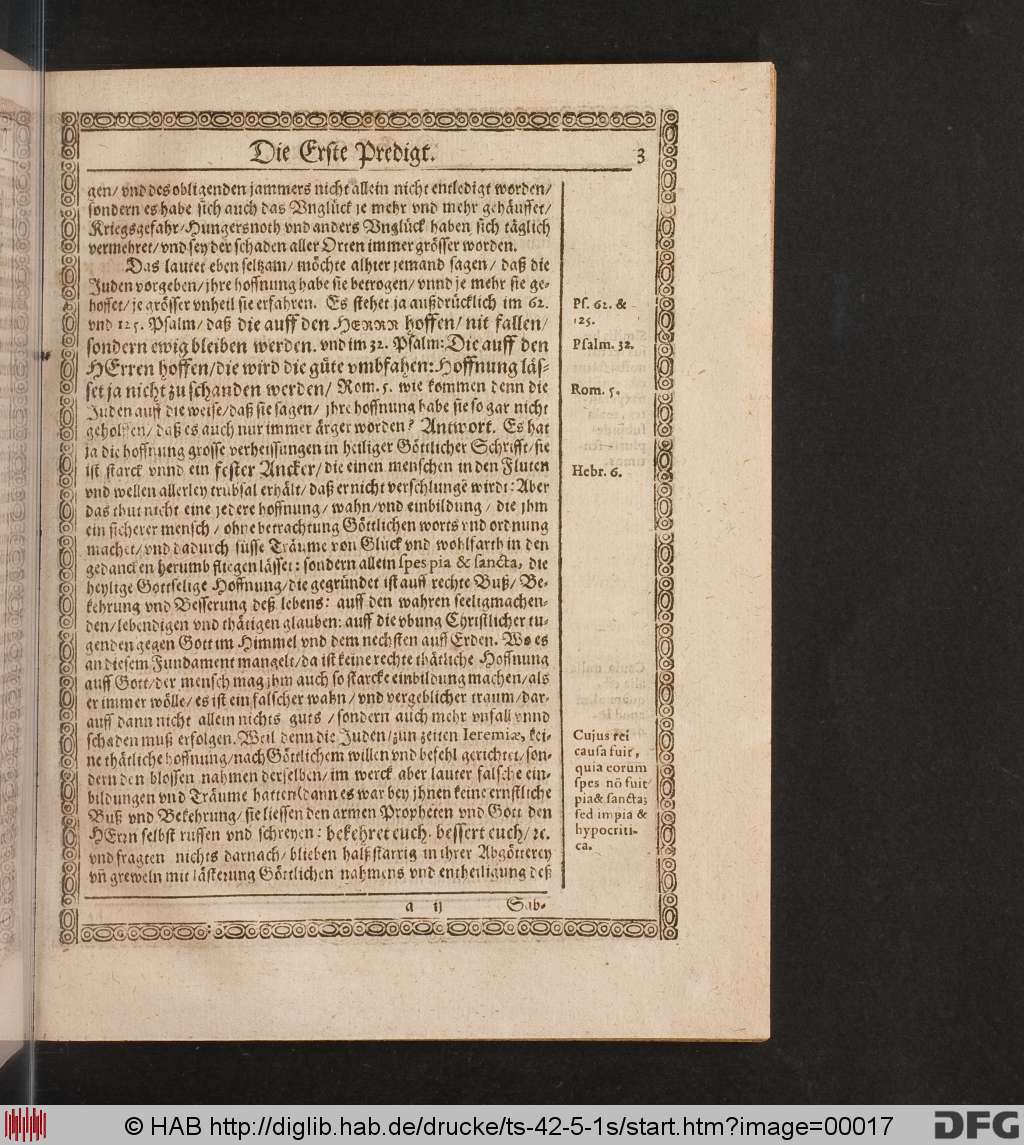 Die Erste Predigt. 3
gen/ vnd des obligenden jammers nicht allein nicht entledigt worden/
sondern es habe sich auch das Vnglück je mehr vnd mehr gehäuffet/
Kriegsgefahr/ Hungersnoth vnd anders Vnglück haben sich täglich
vermehret/ vnd sey der schaden aller Orten immer grösser worden.
Das lautet eben seltzam/ möchte alhier jemand sagen/ daß die
Juden vorgeben/ jhre hoffnung habe sie betrogen/ vnnd je mehr sie ge-
hoffet/ je grösser vnheil sie erfahren. Es stehet ja außdrücklich im 62.
vnd 125. Psalm/ daß die auff den HERRN hoffen/ nit fallen/
sondern ewig bleiben werden. vnd im 32. Psalm: Die auff den
HErren hoffen/ die wird die güte vmbfahen: Hoffnung läs-
set ja nicht zu schanden werden/ Rom. 5. wie kommen denn die
Juden auff die weise/ daß sie sagen/ jhre hoffnung habe sie so gar nicht
geholffen/ daß es auch nur immer ärger worden? Antwort. Es hat
ja die hoffnung grosse verheissungen in heiliger Göttlicher Schrifft/ sie
ist starck vnnd ein fester Ancker/ die einen menschen in den Fluten
vnd wellen allerley trübsal erhält/ daß er nicht verschlungē wirdt: Aber
das thut nicht eine jedere hoffnung/ wahn/ vnd einbildung/ die jhm
ein sicherer mensch/ ohne betrachtung Göttlichen worts vnd ordnung
machet/ vnd dadurch süsse Träume von Glück vnd wohlfarth in den
gedancken herumb fliegen lässet: sondern allein spes pia & sancta, die
heylige Gottselige Hoffnung/ die gegründet ist auff rechte Buß/ Be-
kehrung vnd Besserung deß lebens: auff den wahren seeligmachen-
den/ lebendigen vnd thätigen glauben: auff die vbung Christlicher tu-
genden gegen Gott im Himmel vnd dem nechsten auff Erden. Wo es
an diesem Fundament mangelt/ da ist keine rechte thätliche Hoffnung
auff Gott/ der mensch mag jhm auch so starcke einbildung machen/ als
er immer wölle/ es ist ein falscher wahn/ vnd vergeblicher traum/ dar-
auff dann nicht allein nichts guts/ sondern auch mehr vnfall vnnd
schaden muß erfolgen. Weil denn die Juden/ zun zeiten Ieremiæ, kei-
ne thätliche hoffnung/ nach Göttlichem willen vnd befehl gerichtet/ son-
dern den blossen nahmen derselben/ im werck aber lauter falsche ein-
bildungen vnd Träume hatten (dann es war bey jhnen keine ernstliche
Buß vnd Bekehrung/ sie liessen den armen Propheten vnd Gott den
HErrn selbst ruffen vnd schreyen: bekehret euch, bessert euch/ ꝛc.
vnd fragten nichts darnach/ blieben halßstarrig in ihrer Abgötterey
vñ greweln mit lästerung Göttlichen nahmens vnd entheiligung deß
a ij Sab-
Ps. 62. &
125.
Psalm. 32.
Rom. 5.
Hebr. 6.
Cujus rei
causa fuit,
quia eorum
spes nō fuit
pia & sancta;
sed impia &
hypocriti-
ca.
© HAB http://diglib.hab.de/drucke/ts-42-5-1s/start.htm?image=00017
DFG